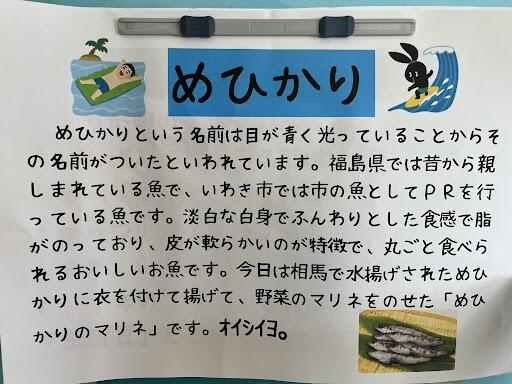 めひかり
めひかりという名前は目が青く光っていることからそ
の名前がついたといわれています。福島県では昔から親
しまれている魚で、いわき市では市の魚としてPRを行
っている魚です。淡白な白身でふんわりとした食感で脂
がのっており、皮が軟らかいのが特徴で、丸ごと食べら
れるおいしいお魚です。今日は相馬で水揚げされためひ
かりに衣を付けて揚げて、野菜のマリネをのせた「めひ
かりのマリネ」です。オイシイヨ。